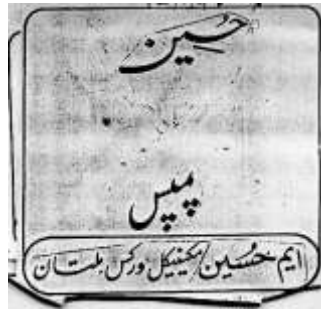 حسین
پمپس
ایم حسین مکینیکل ورکس ملتان